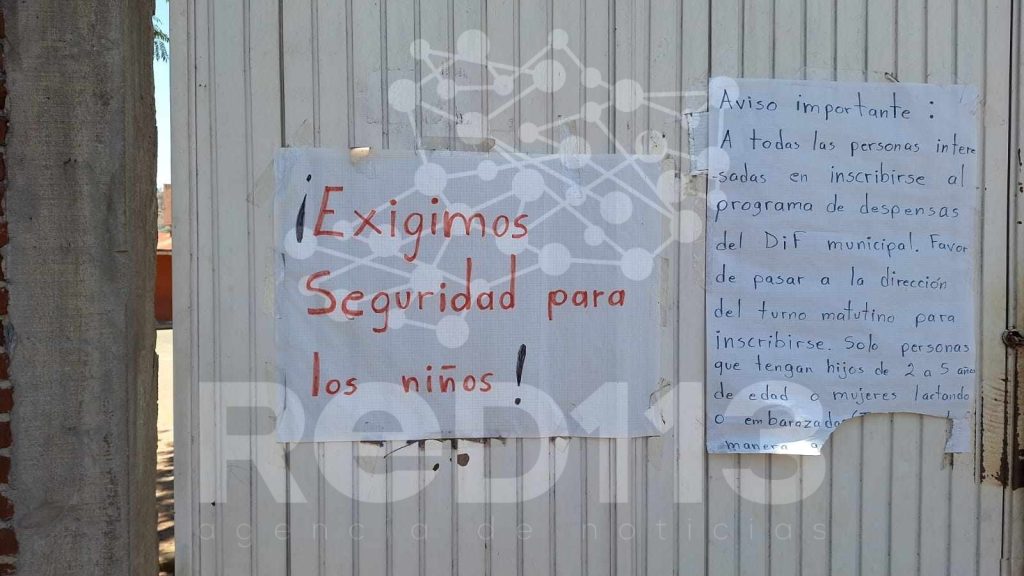 ¡Exigimos
Seguridad para
los niños!
Aviso importante :
A todas las personas intere
-sadas en inscribirse al
programa de despensas
del DiF municipal. Favor
de pasar a la dirección
del turno matutino para
inscribirse. Solo personas
que tengan hijos de 2 a 5 años
de edad o mujeres lactando
o embarazada
manera
ReD113
agencia de noticias